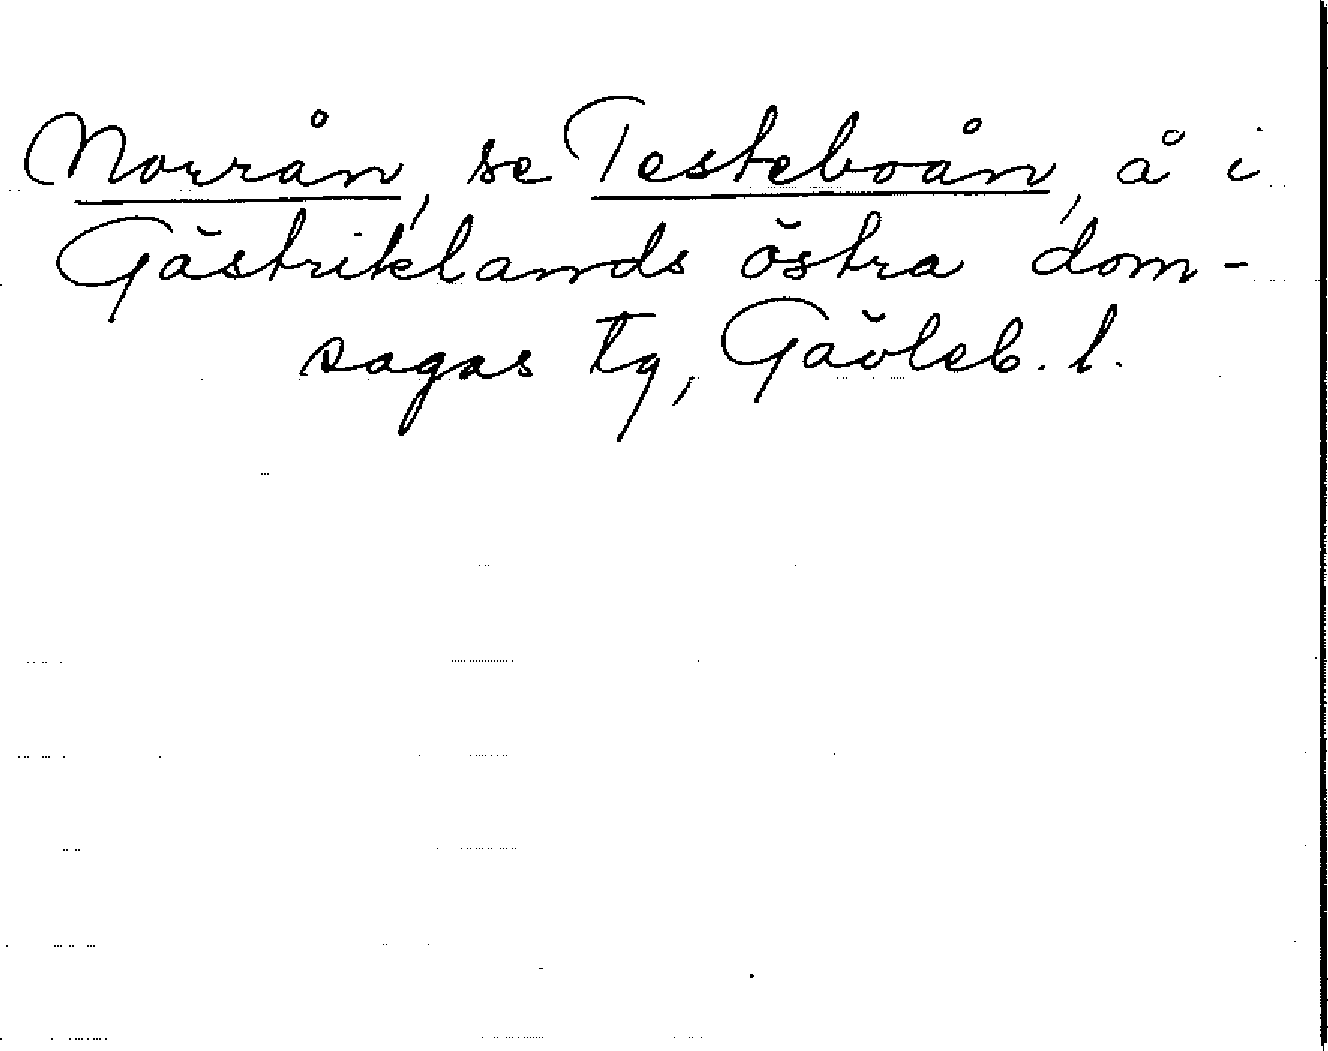 Norrån, se Testeboån, å i
Gästriklands östra dom-
sagas tg, Gävleb. l.